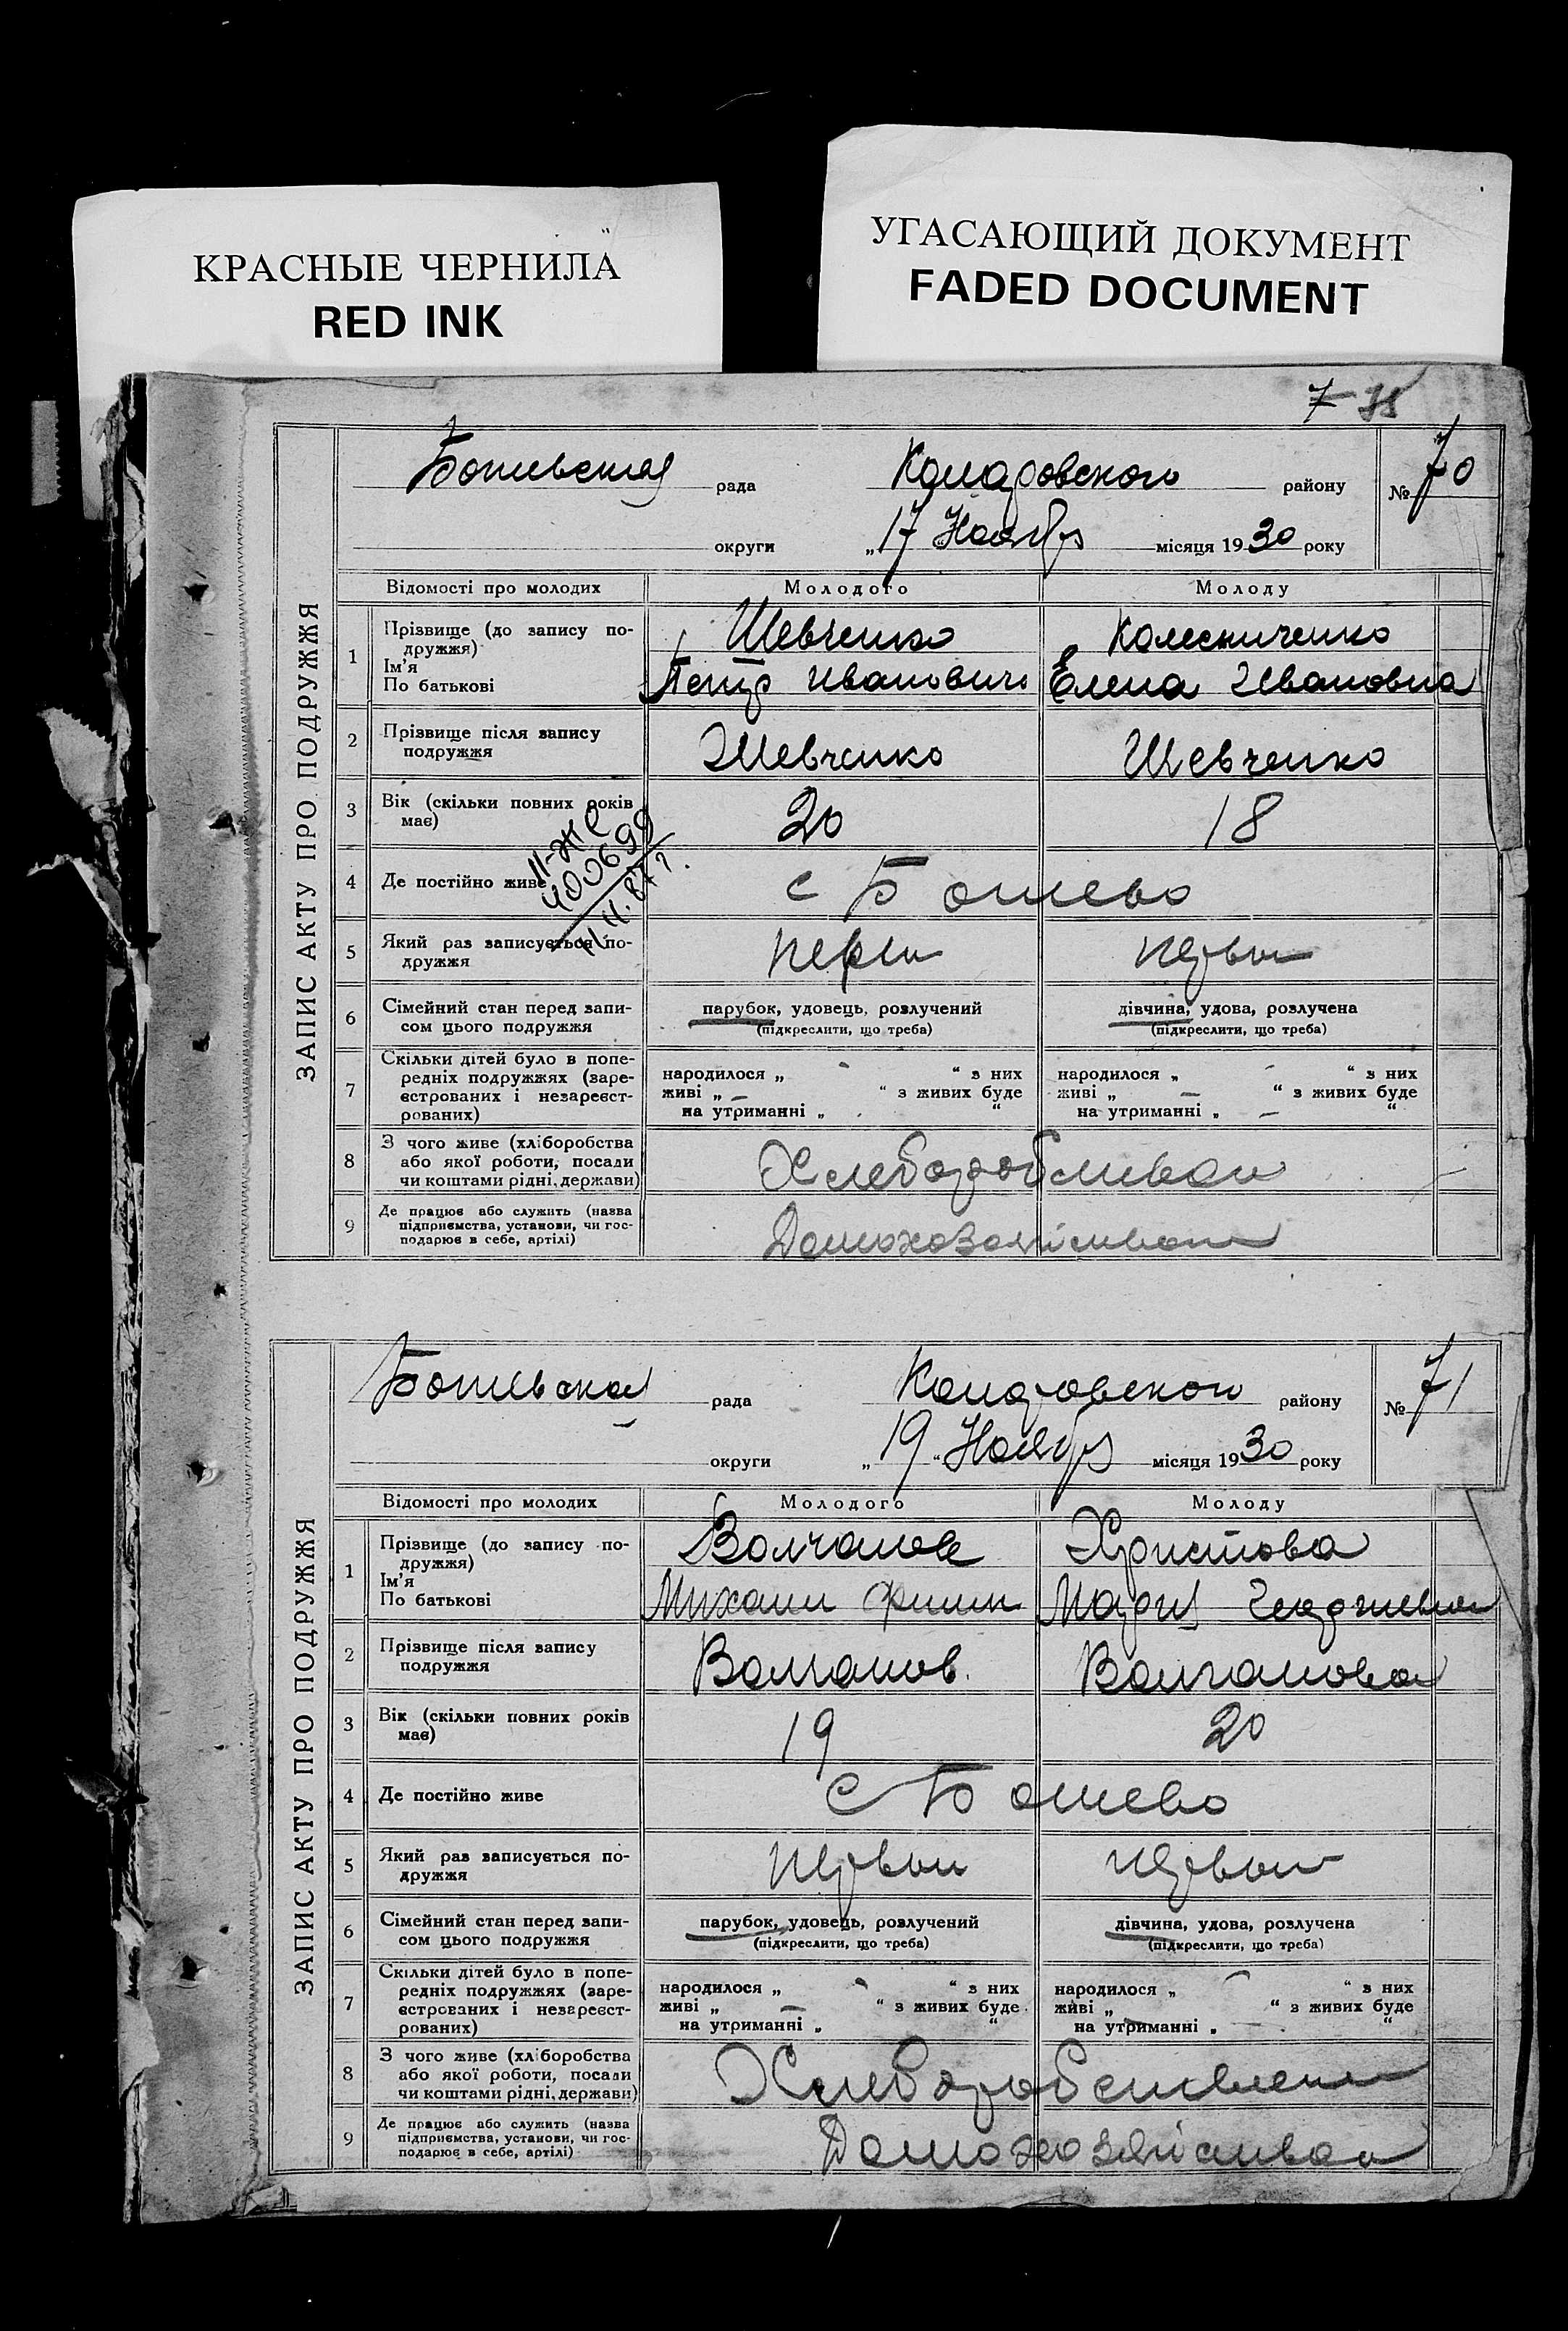 КРАСНЫЕ ЧЕРНИЛА
RED INK
УГАСАЮЩИЙ ДОКУМЕНТ
FADED DOCUMENT
ЗАПИС АКТУ ПРО ПОДРУЖЖЯ
рада района Комаровского району № 70
округи „17“ Ноября місяця 1930 року
Відомості про молодих Молодого Молоду
1 Прізвище (до запису по-
дружжя) Шевченко Колесниченко
Ім'я
По батькові Петр Иванович Елена Ивановна
2 Прізвище після запису
подружжя Шевченко Шевченко
3 Вік (скільки повних років
має) 20 18
II-ЖС
400699
4 Де постійно живе с Ботево
5 Який раз записується по-
дружжя первый
6 Сімейний стан перед запи-
сом цього подружжя
парубок, удовець, розлучений дівчина, удова, розлучена
(підкреслити, що треба) (підкреслити, що треба)
7 Скільки дітей було в попе-
редніх подружжях (заре-
єстрованих і незареєст-
рованих)
народилося „ - “ з них народилося „ - “ з них
живі „ - “ з живих буде живі „ - “ з живих буде
на утриманні „ “ на утриманні „ - “
8 З чого живе (хліборобства
або якої роботи, посади
чи коштами рідні, держави)
9 Де працює або служить (назва
підприємства, установи, чи гос-
подарює в себе, артілі)
ЗАПИС АКТУ ПРО ПОДРУЖЖЯ
рада району № 71
округи „19“ Ноября місяця 1930 року
Відомості про молодих Молодого Молоду
1 Прізвище (до запису по-
дружжя) Волчанов Христова
Ім'я
По батькові Михаил Мария Георгиевна
2 Прізвище після запису
подружжя Волчанов Волчанова
3 Вік (скільки повних років
має) 19 20
4 Де постійно живе с Ботево
5 Який раз записується по-
дружжя первый первый
6 Сімейний стан перед запи-
сом цього подружжя
парубок, удовець, розлучений дівчина, удова, розлучена
(підкреслити, що треба) (підкреслити, що треба)
7 Скільки дітей було в попе-
редніх подружжях (заре-
єстрованих і незареєст-
рованих)
народилося „ - “ з них народилося „ - “ з них
живі „ - “ з живих буде живі „ “ з живих буде
на утриманні „ “ на утриманні „ “
8 З чого живе (хліборобства
або якої роботи, посади
чи коштами рідні, держави)
9 Де працює або служить (назва
підприємства, установи, чи гос-
подарює в себе, артілі)